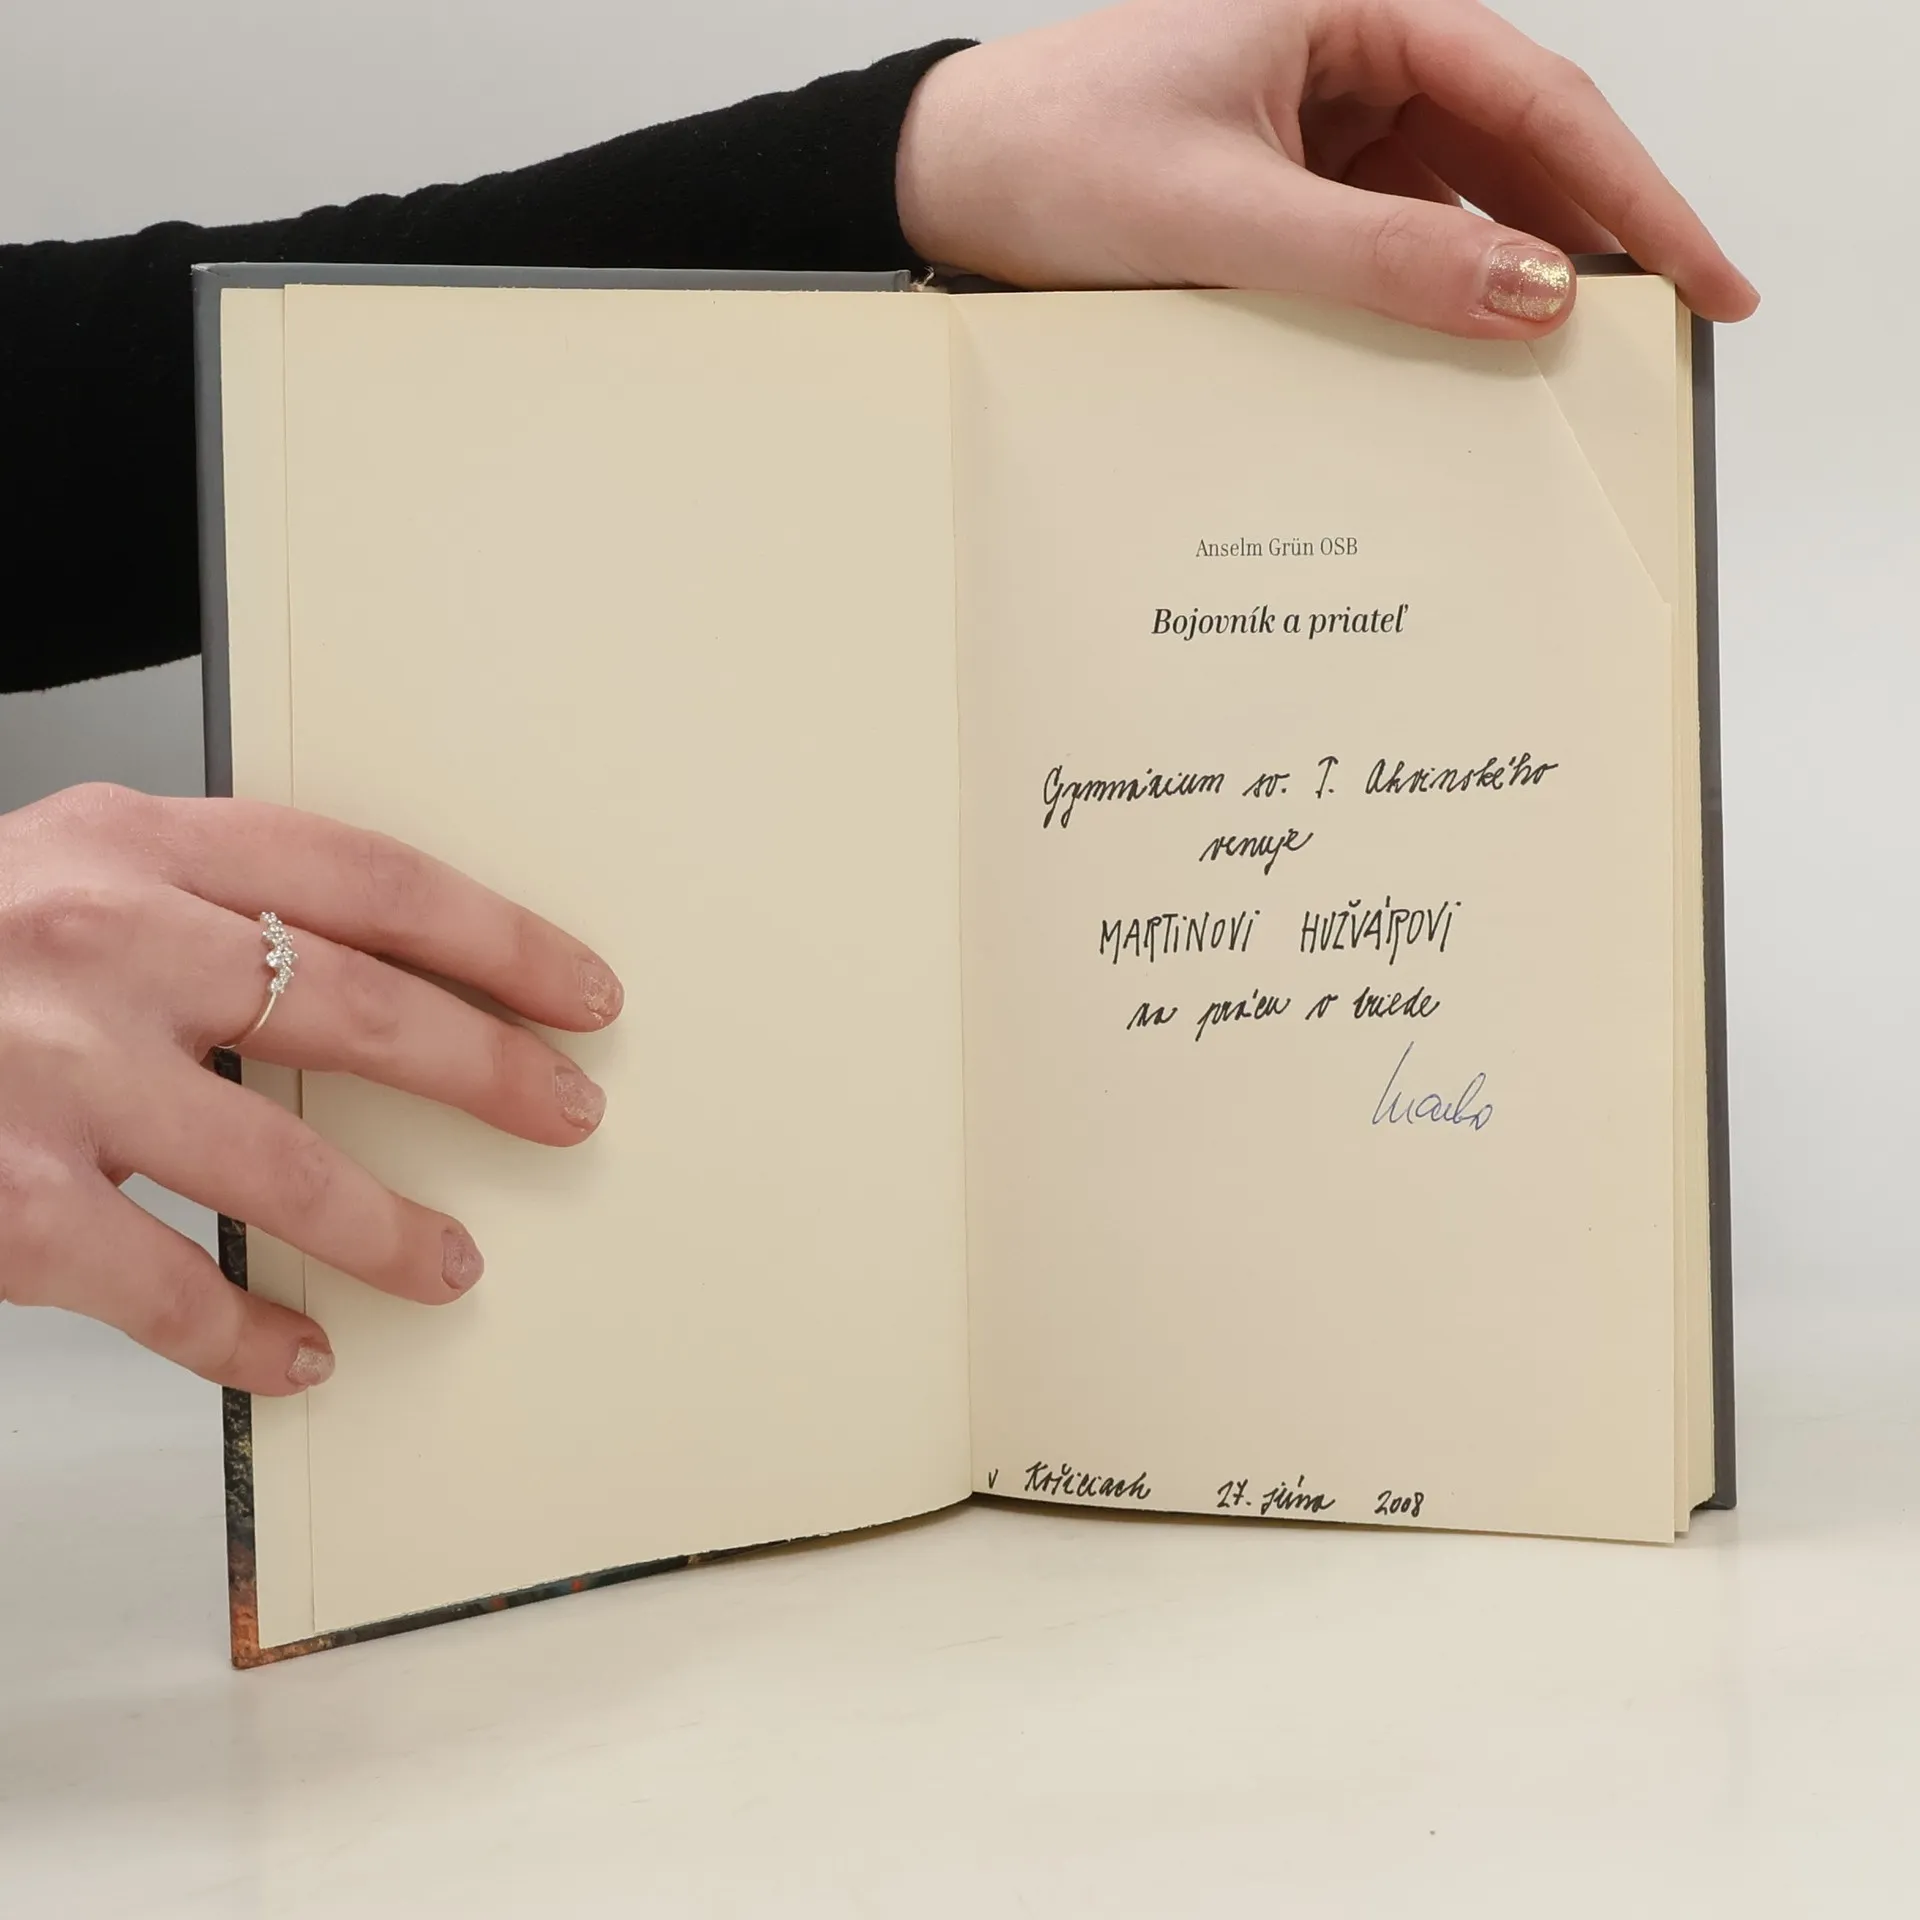 Anselm Grün OSB
Bojovník a priateľ
Gymnázium sv. T. Akvinského
venuje
MARTINOVI HUŽVÁROVI
za prácu v triede
v Košiciach 27. júna 2008